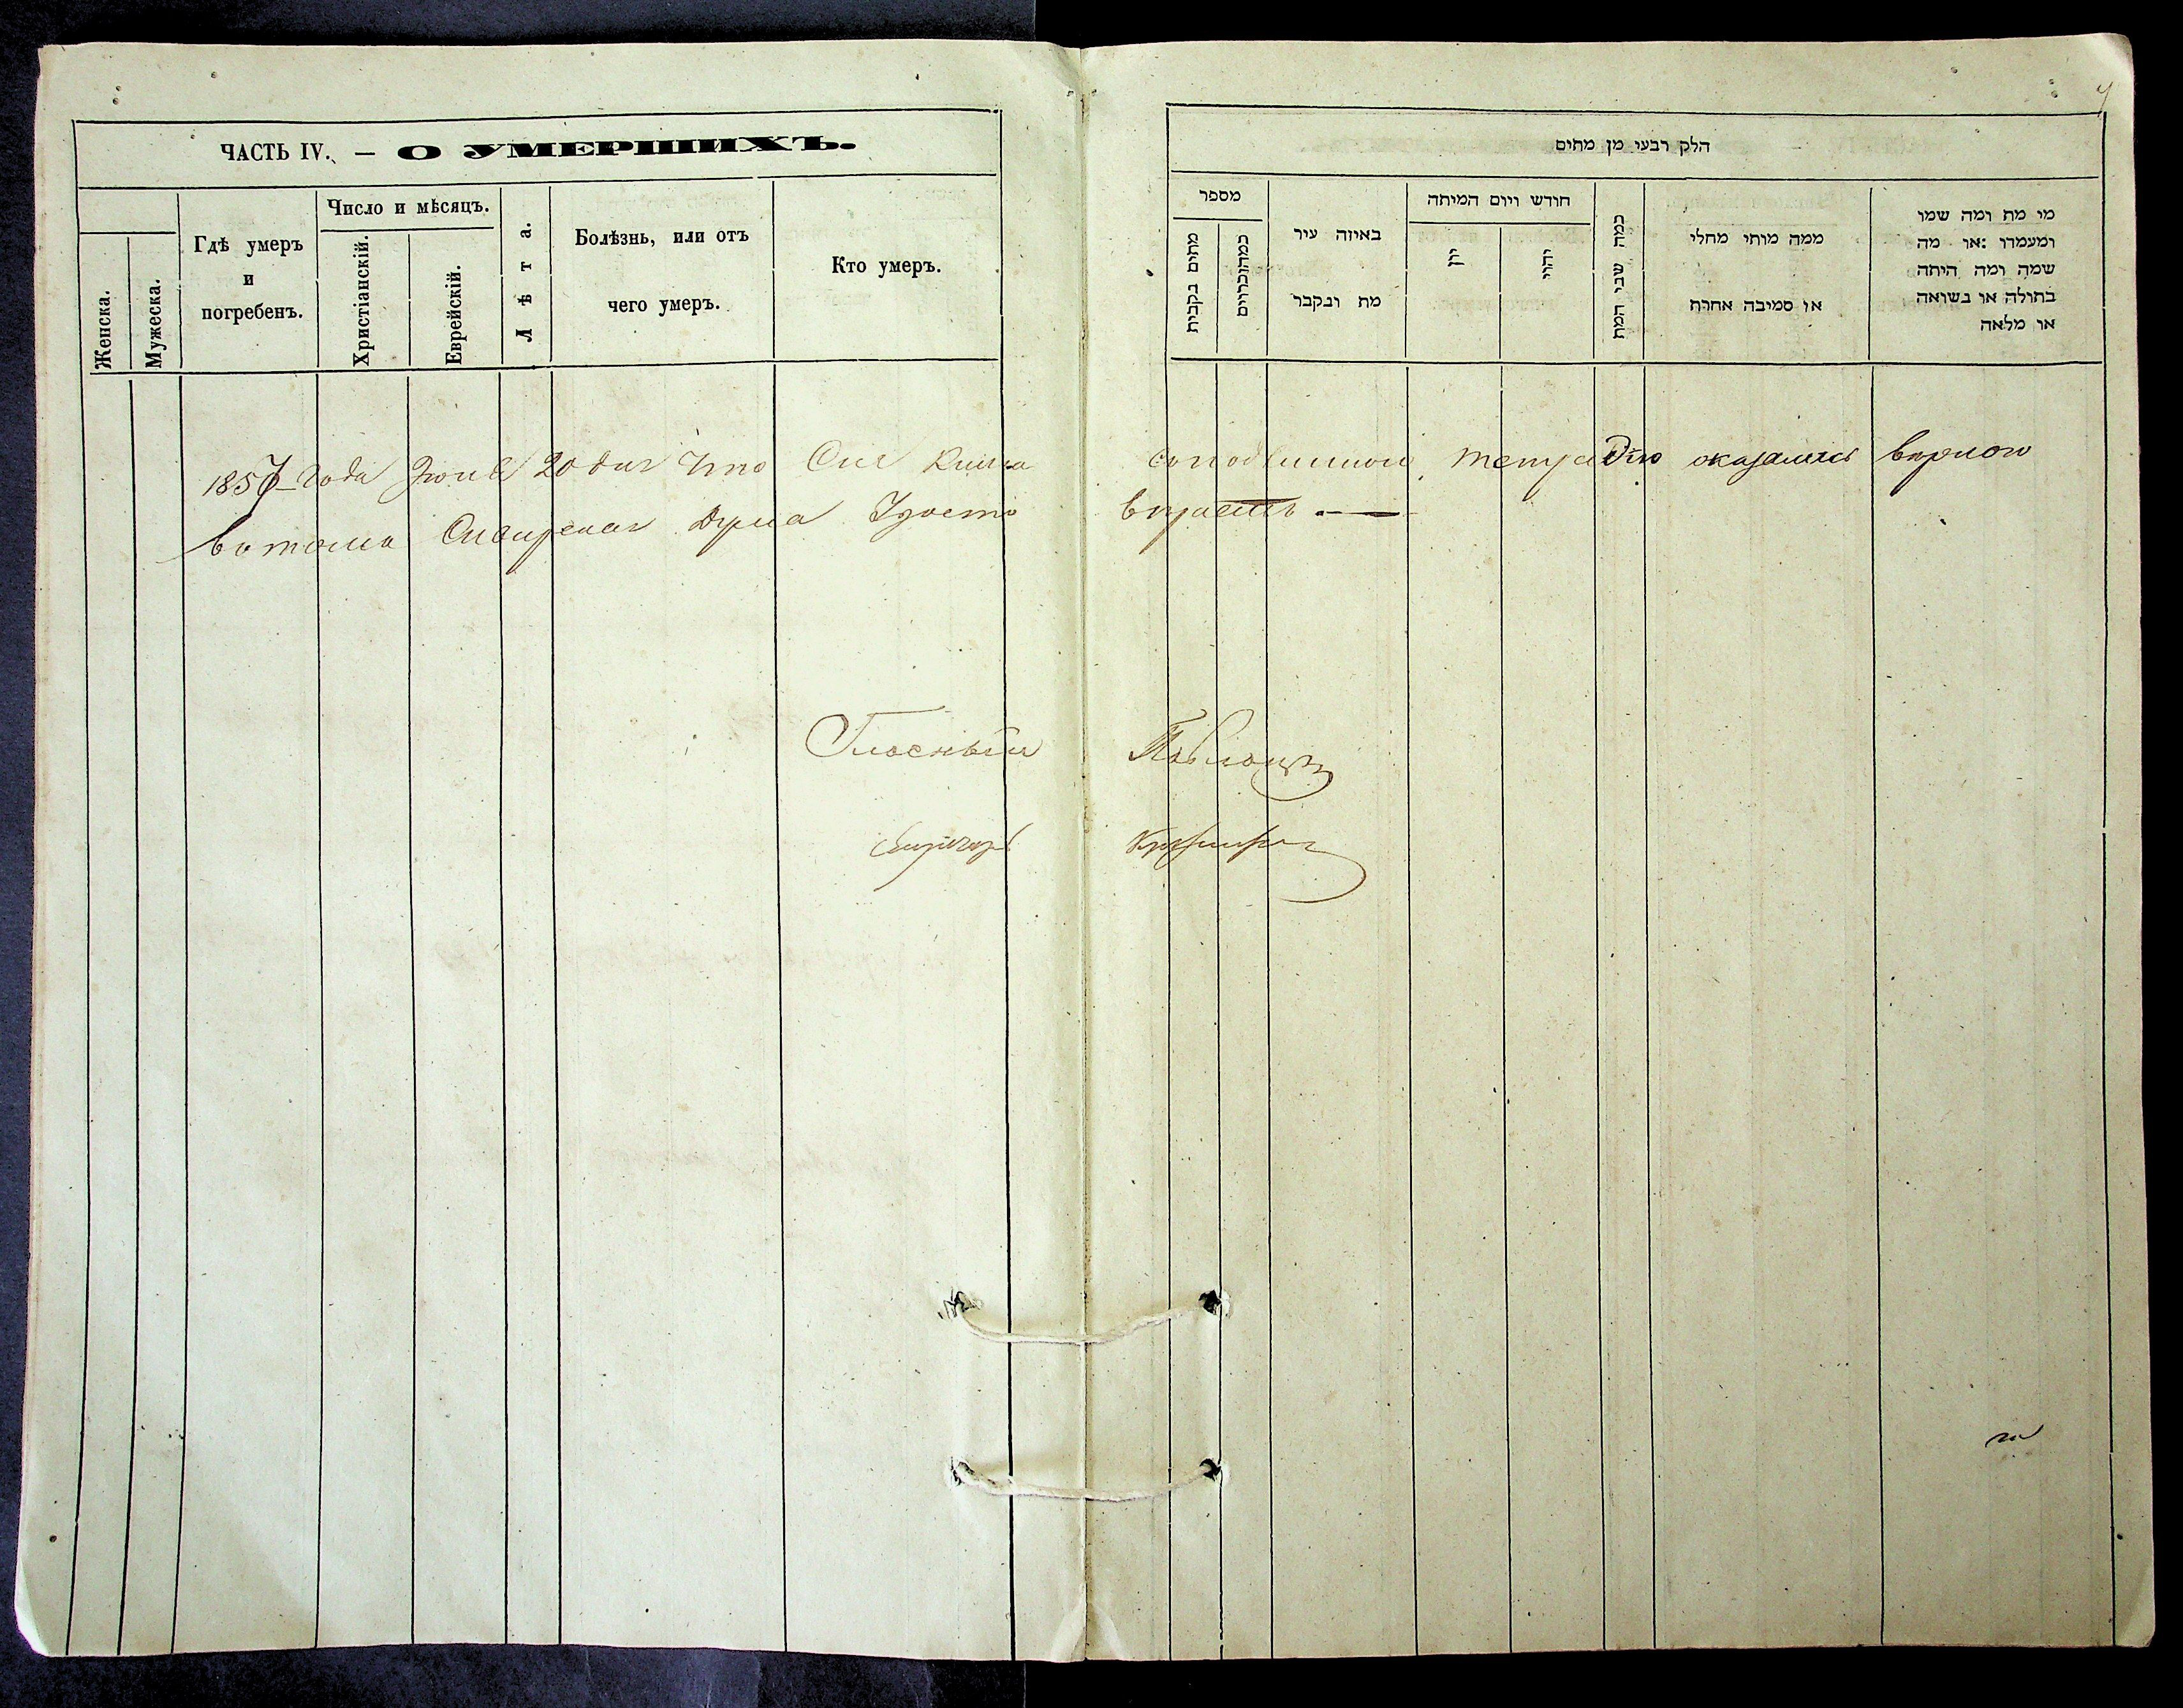 ЧАСТЬ IV. — О УМЕРШИХЪ.
Женска.
Мужеска.
Гдѣ умеръ
и
погребенъ.
Число и мѣсяцъ.
Христіанскій.
Еврейскій.
Лѣта.
Болѣзнь, или отъ
чего умеръ.
Кто умеръ.
הלק רבעי מן מתים
מספר
מתים נקבית
באיזה עיר
מת ונקבר
חודש ויום המיתה
יון
יהודי
כמה שני המת
ממה מותי מחלי
או סמיבה אחרת
מי מת ומה שמו
ומעמדו :או מה
שמה ומה היתה
בתולה או נשואה
או מלאה
1857 года Іюня 20 дня Что Сія Книга соподлинною тетрадью оказалась верною
в томъ Сквирская Дума Удосто веряетъ —
Гласный
Бургомистръ